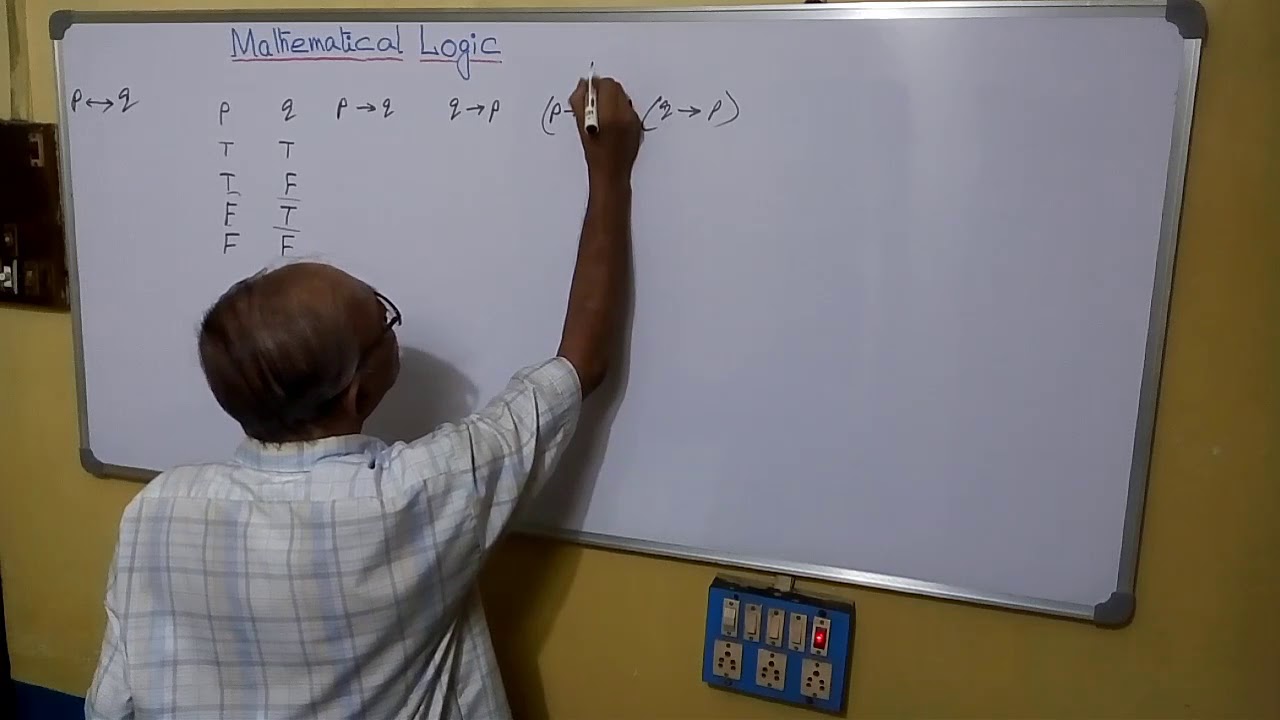 Mathematical Logic
p↔q p q p→q q→p (p→ (q→p)
T T
T F
F T
F F